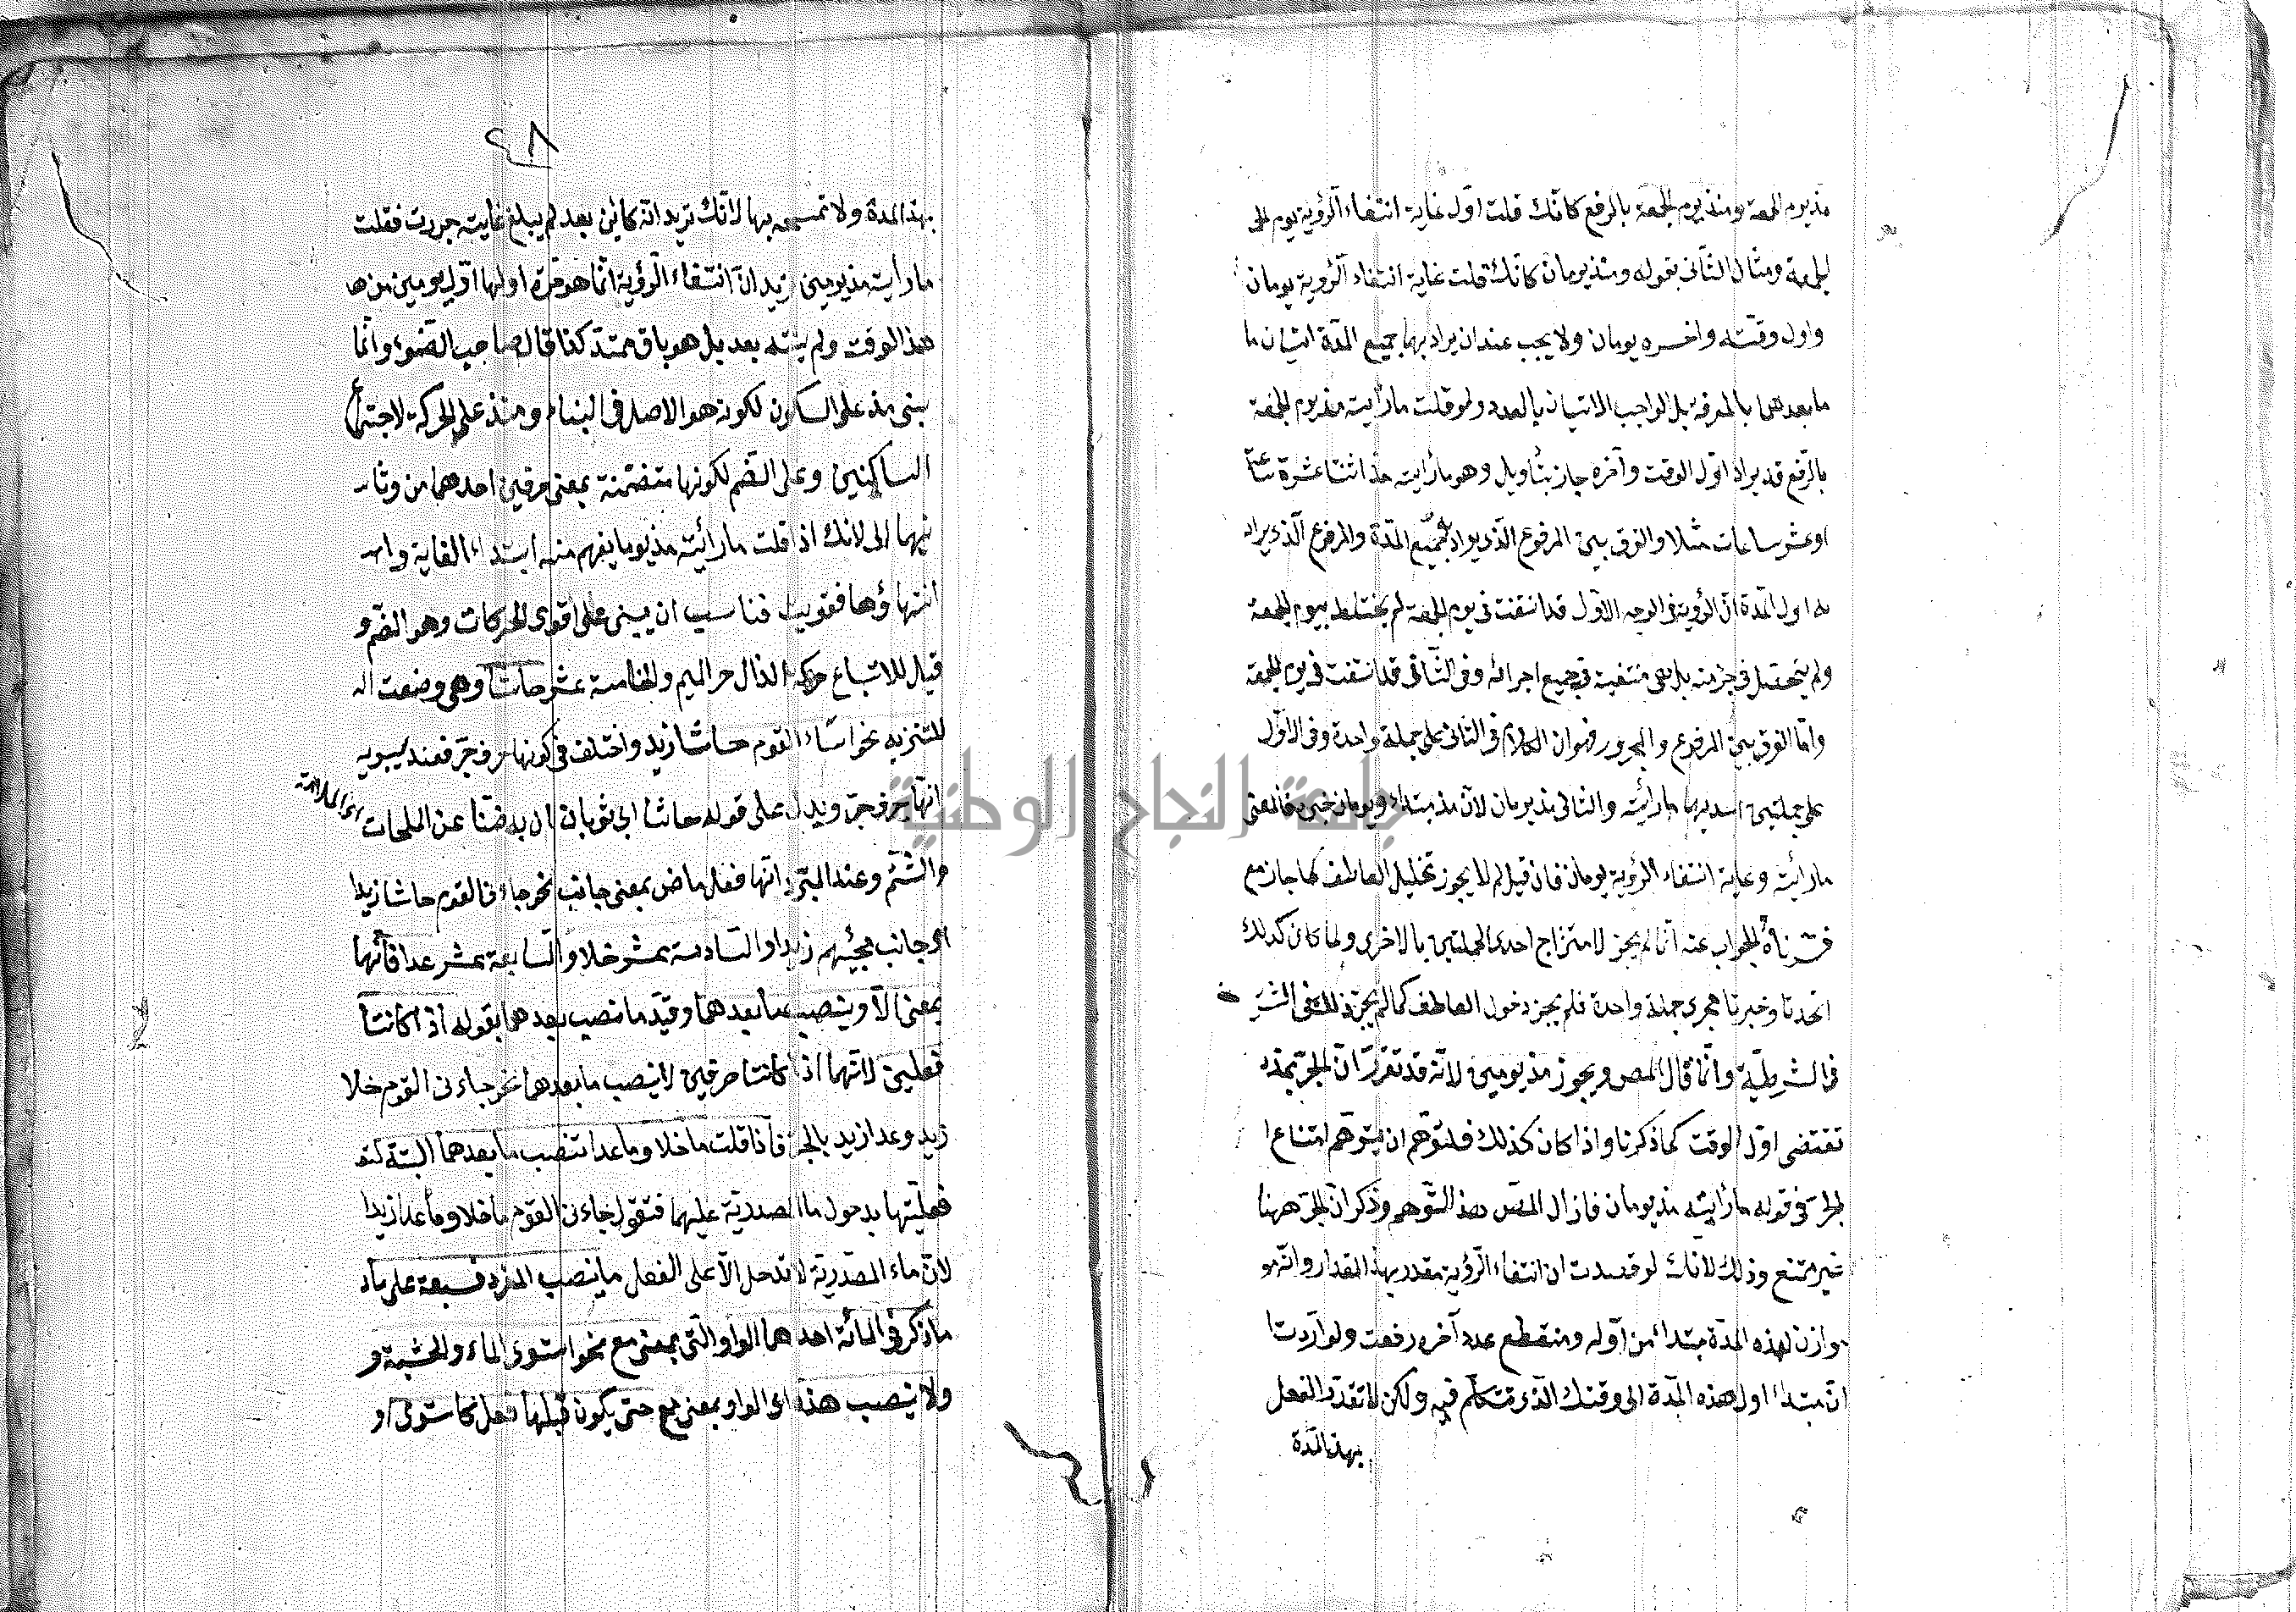 مذ يوم الجمعة ومنذ يوم الجمعة بالرفع كانك قلت اول غاية انتفاء الرؤية يوم الج
الجمعة ومثال الثاني بقوله ومنذ يومان كانك قلت غاية انتفاء الرؤية يومان
واول وقته واخره يومان ولا يجب عند ان يراد بهما جميع المدة اتيان ما
ما بعدهما بالمعرفه بل الواجب الاتيان بالعدد ولو قلت ما رأيته مذ يوم الجمعة
بالرفع قد يراد اول الوقت وآخره جاز بتأويل وهو ما رأيته مذ اثنتا عشرة ساعة
او عشر ساعات مثلا والفرق بين المرفوع الذي يراد به جميع المدة والمرفوع الذي يراد
به اول المدة ان الرؤية في الوجه الاول قد انتفت في يوم الجمعة لم يختلط بيوم الجمعة
ولم يتحصل في جزء منه بل هي منتفية في جميع اجزائه وفي الثاني قد انتفت في يوم الجمعة
واما الفرق بين المرفوع والمجرور فهو ان الكلام في الثاني على جملة واحدة وفي الاول
على جملتين احديهما ما رأيته والثاني مذ يومان لان مذ مبتداء ويومان خبره فالمعنى
ما رأيته وغاية انتفاء الرؤية يومان فان قيل لم لا يجوز تخليل العاطف كما جاز مع
فسرناه الجواب عنه انما لم يجز لامتزاج احدى الجملتين بالاخرى ولما كان كذلك
اتحدتا وخبرتا مجرى جملة واحدة فلم يجز دخول العاطف كما لم يجز ذلك في الشر
في الشرطية وانما قال المص ويجوز مذ يومين لانه قد تقرر ان الجر بمذ
تقتضي اول الوقت كما ذكرنا واذا كان كذلك فلتوهم ان يتوهم امتناع ا
لجر في قوله ما رأيته مذ يومان فازال المص هذا التوهم وذكر ان الجر ههنا
غير ممتنع وذلك لانك لو قصدت ان انتفاء الرؤية مقدر بهذا المقدار وانه مو
موازن لهذه المدة مبتداء من اوله ومنقطع عند آخره رفعت ولو اردت ا
ان مبتداء اول هذه المدة الى وقتك الذي تتكلم فيه ولكن لا تقدر الفعل
بهذا المدة
٢٨
بهذا المدة ولا تمسى بها لانك تريد انه كائن بعد لم يبلغ غايته جررت فقلت
ما رأيته مذ يومين تريد ان انتفاء الرؤية انما هو مرة اولها اول يومين من ها
هذا الوقت ولم ينته بعد بل هو باق ممتد كذا قال صاحب الضوء وانما
بني مذ على السكون لكونه هو الاصل في البناء ومنذ على الحركة لاجتماع
الساكنين وعلى الضم لكونها متضمنة بمعنى حرفين احدهما من وثا
نيهما الى لانك اذا قلت ما رأيته مذ يوما يفهم منه ابتداء الغاية و
انتهاؤها فقويت فناسب ان يبنى على اقوى الحركات وهو الضم و
قيل للاتباع حركة الذال حر الميم والخامسة عشر حاشا وهي وضعت اله
للتنزيه نحو اساء القوم حاشا زيد واختلف في كونها حرف جر فعند سيبويه
انها حرف جر ويدل على قوله حاشا ابي ثوبان ان به ضنا عن الملحات
اى الملامة
والشتم وعند المبرد انها فعل ماض بمعنى جانب نحو جاءني القوم حاشا زيدا
اى جانب مجيئهم زيدا والسادسة عشر خلا والسابعة عشر عدا فانها
بمعنى الا وينصب ما بعدهما وقيد ما نصب بعدهما بقوله اذا كانتا
فعلين لانهما اذا كانتا حرفين لا ينصب ما بعدهما نحو جاءني القوم خلا
زيد وعدا زيد بالجر فاذا قلت ما خلا وما عدا تنصب ما بعدهما البتة لتعـ
فعليتها بدخول ما المصدرية عليهما فتقول جاءني القوم ما خلا وما عدا زيدا
لان ماء المصدرية لا تدخل الا على الفعل ما ينصب المفرد فسبعة على ما ذ
ما ذكر في المائة احدهما الواو التي بمعنى مع نحو استوى الماء والخشبة و
ولا ينصب هذه اى الواو بمعنى مع حتى يكون قبلها فعل كاستوى او
جامعة النجاح الوطنية